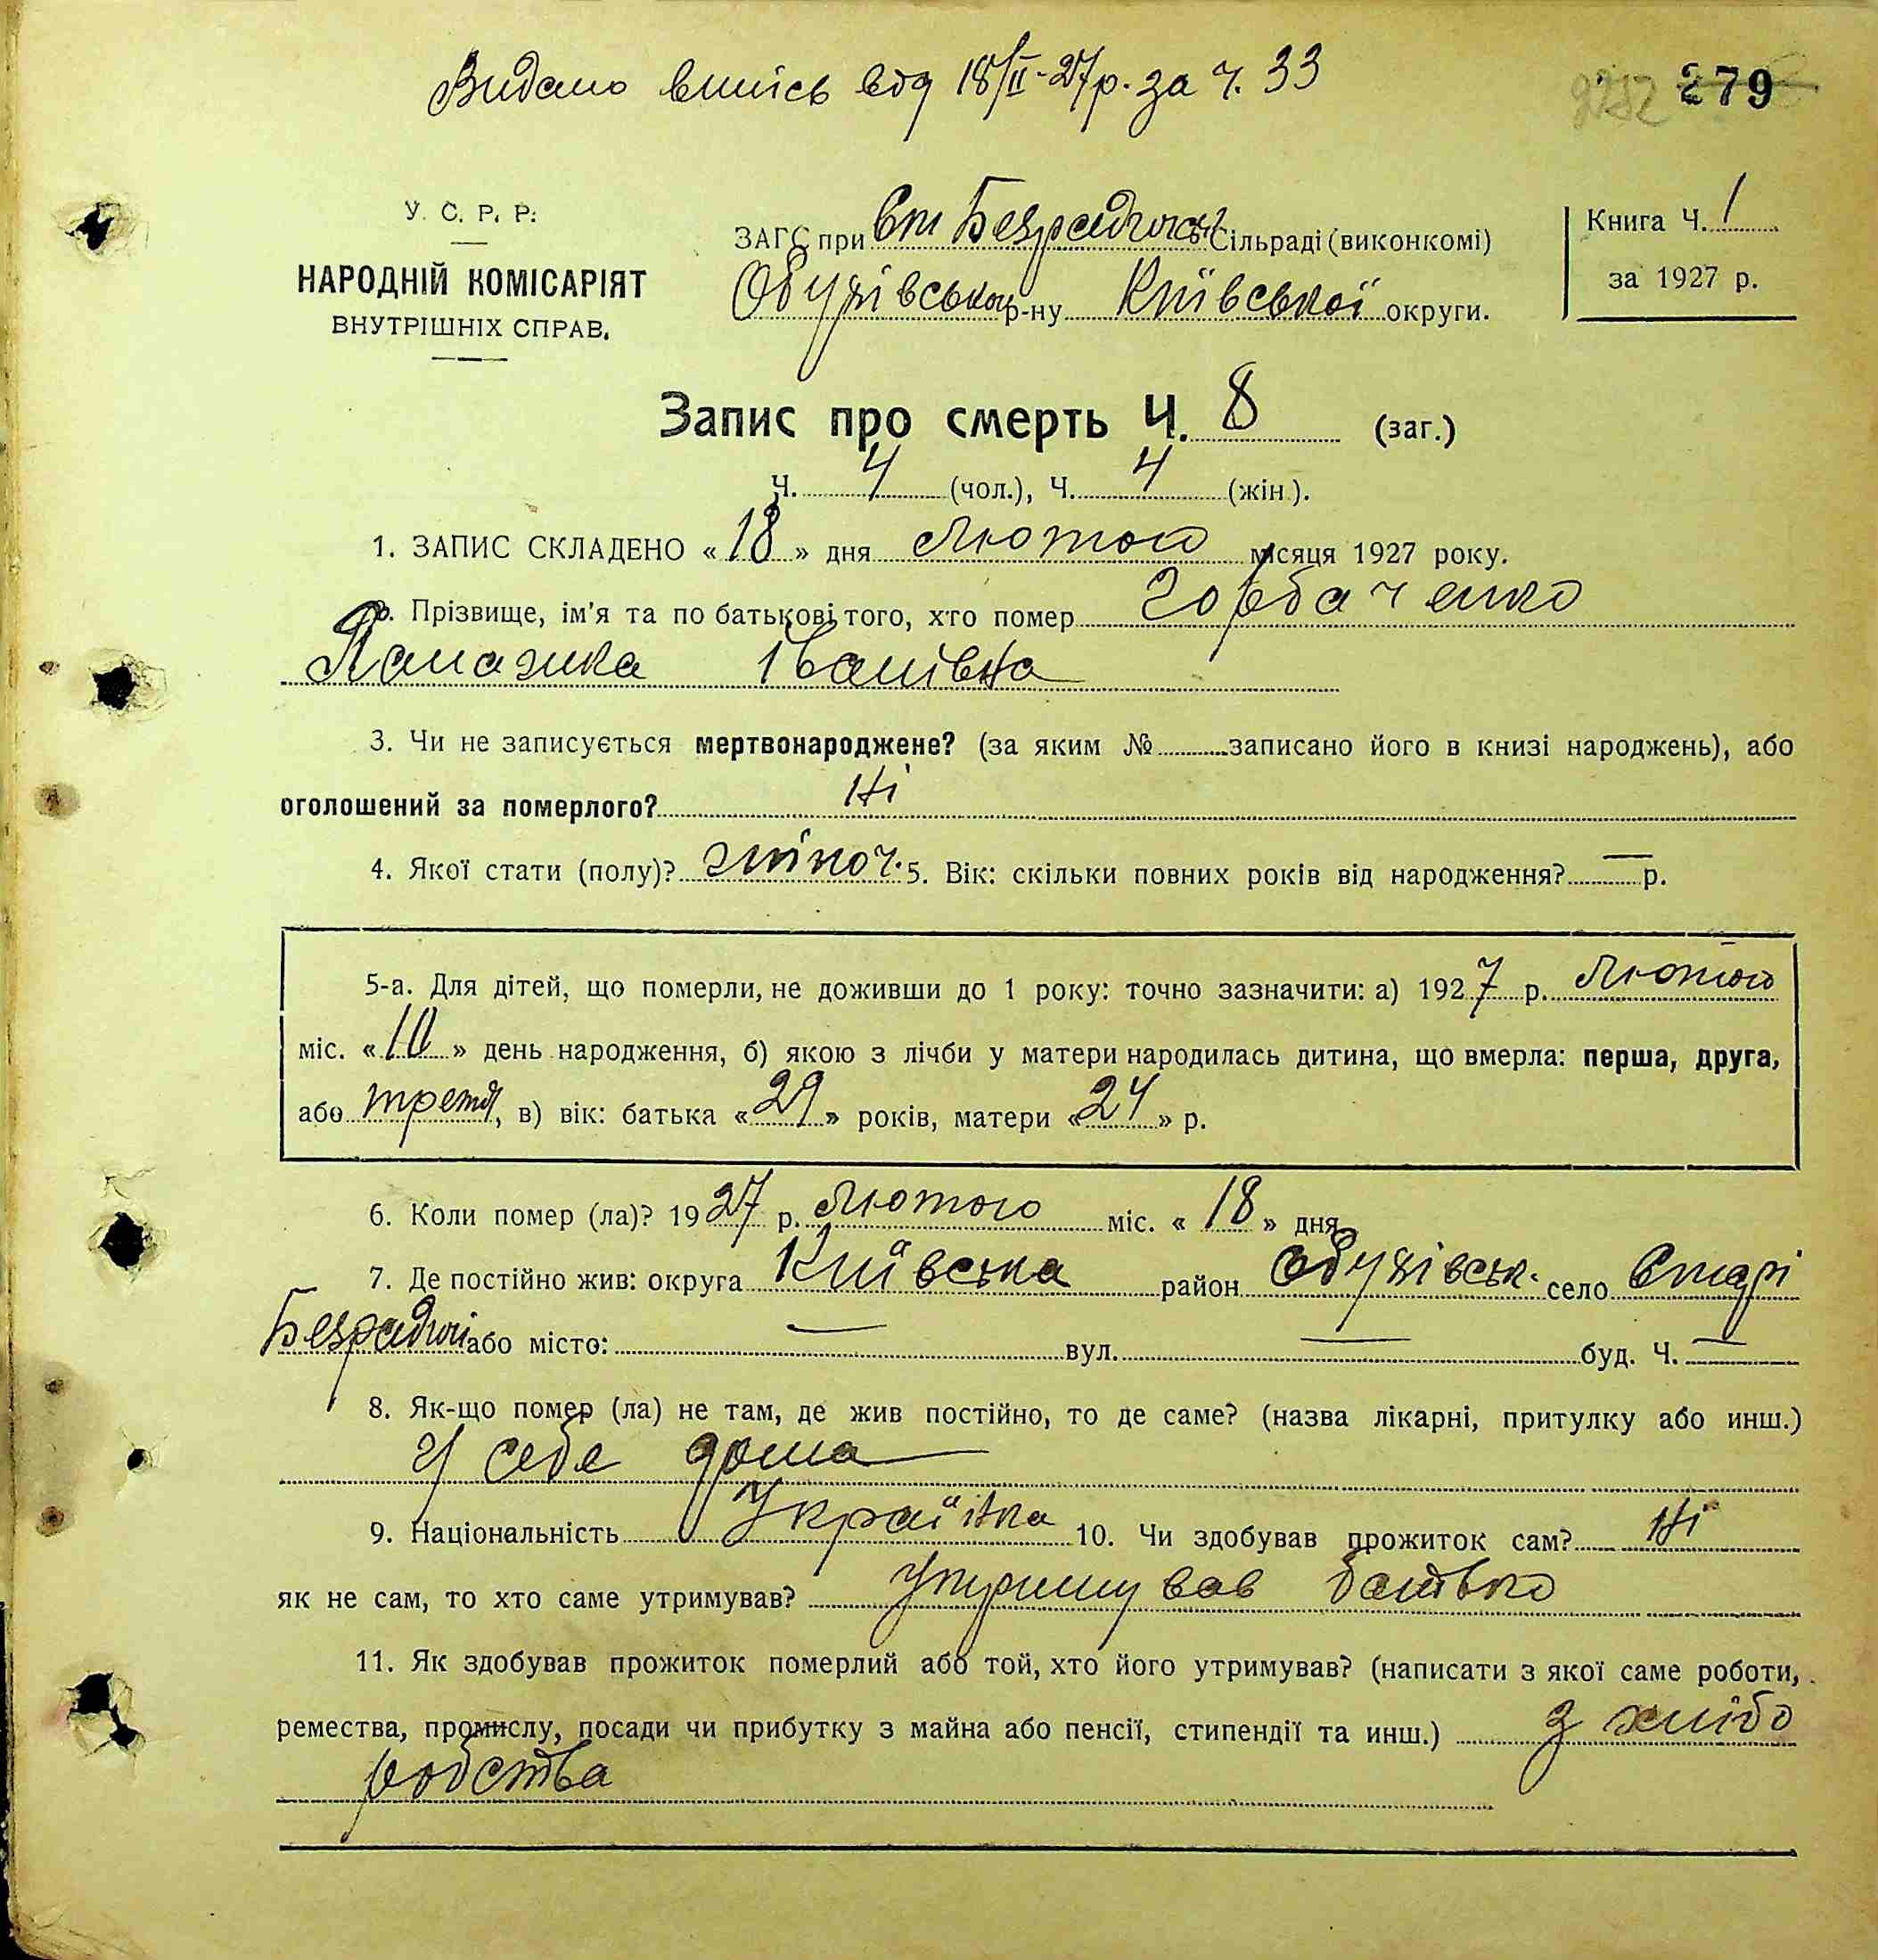 Видано випісь від 18/II-27р. за ч. 33
279
У. С. Р. Р.
НАРОДНІЙ КОМІСАРІЯТ
ВНУТРІШНІХ СПРАВ.
ЗАГС при Ст Безрадичськ Сільраді (виконкомі)
Обухівського р-ну Київської округи.
Книга Ч. 1
за 1927 р.
Запис про смерть Ч. 8 (заг.)
Ч. 4 (чол.), Ч. 4 (жін.).
1. ЗАПИС СКЛАДЕНО «18» дня Лютого місяця 1927 року.
2. Прізвище, ім'я та по батькові того, хто помер Горбаченко
Палажка Іванівна
3. Чи не записується мертвонароджене? (за яким № записано його в книзі народжень), або
оголошений за померлого? Ні
4. Якої стати (полу)? жіноч. 5. Вік: скільки повних років від народження? — р.
5-а. Для дітей, що померли, не доживши до 1 року: точно зазначити: а) 1927 р. Лютого
міс. «10» день народження, б) якою з лічби у матери народилась дитина, що вмерла: перша, друга,
або третя, в) вік: батька «29» років, матери «24» р.
6. Коли помер (ла)? 1927 р. Лютого міс. «18» дня
7. Де постійно жив: округа Київська район Обухівськ. село Старі
Безрадичі або місто: — вул. — буд. Ч. —
8. Як-що помер (ла) не там, де жив постійно, то де саме? (назва лікарні, притулку або инш.)
У себе дома
9. Національність Українка 10. Чи здобував прожиток сам? Ні
як не сам, то хто саме утримував? Утримував батько
11. Як здобував прожиток померлий або той, хто його утримував? (написати з якої саме роботи,
ремества, промислу, посади чи прибутку з майна або пенсії, стипендії та инш.) з хлібо
робства